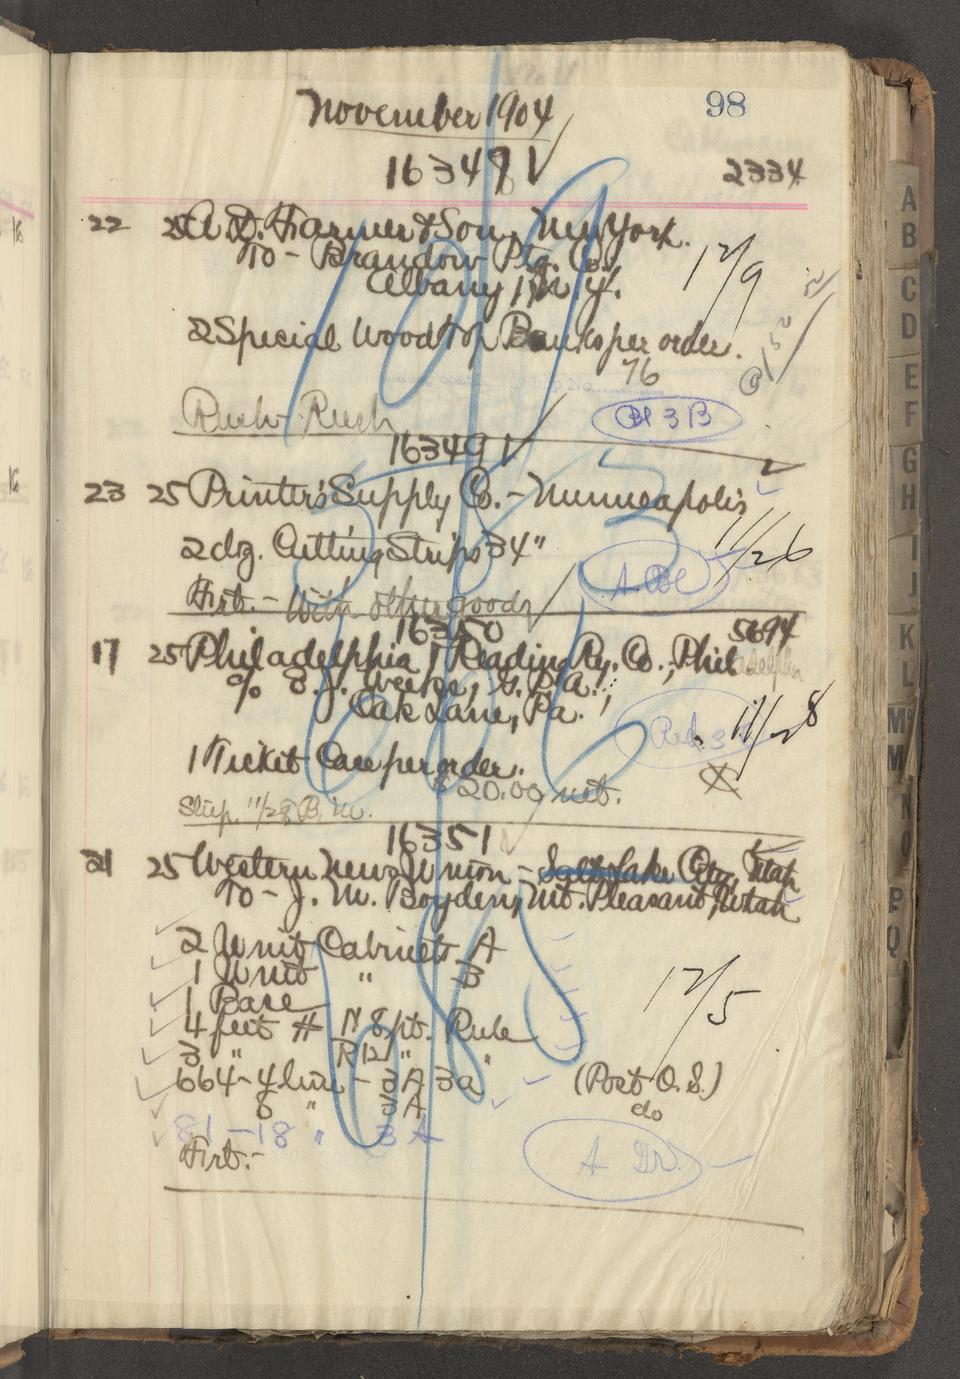 98
November 1904
16348 V
2334
22 25 A.D. Farmer & Son, New York.
To - Brandow Ptg. Co.
Albany, N.Y.
12/9
2 Special Wood Top Banks per order.
76
Rush Rush
Bl 3 B
16349 V
23 25 Printer's Supply Co. - Minneapolis
2 doz. Cutting Strips 34"
11/26
Frt. - With other goods
A Bl
16350
5694
17 25 Philadelphia & Reading Ry. Co., Philadelphia
c/o E.J. Weeks, G.P.A.
Oak Lane, Pa.
11/28
1 Ticket Case per order.
$20.00 net.
Ship 11/28 B.M.
16351
21 25 Western News Union - Salt Lake City, Utah
To - J. M. Boyden, Mt. Pleasant, Utah
2 Unit Cabinets A
1 Unit " B
1 Base
12/5
4 feet # N 8 pt. Rule
3 " R 12 " "
664 - 4 line - 3A 3a
(Post O.S.)
8 " 3A
do
81 - 18 " 3 A
Frt. -
A Gr.
A
B
C
D
E
F
G
H
I
J
K
L
Mc
M
N
O
P
Q